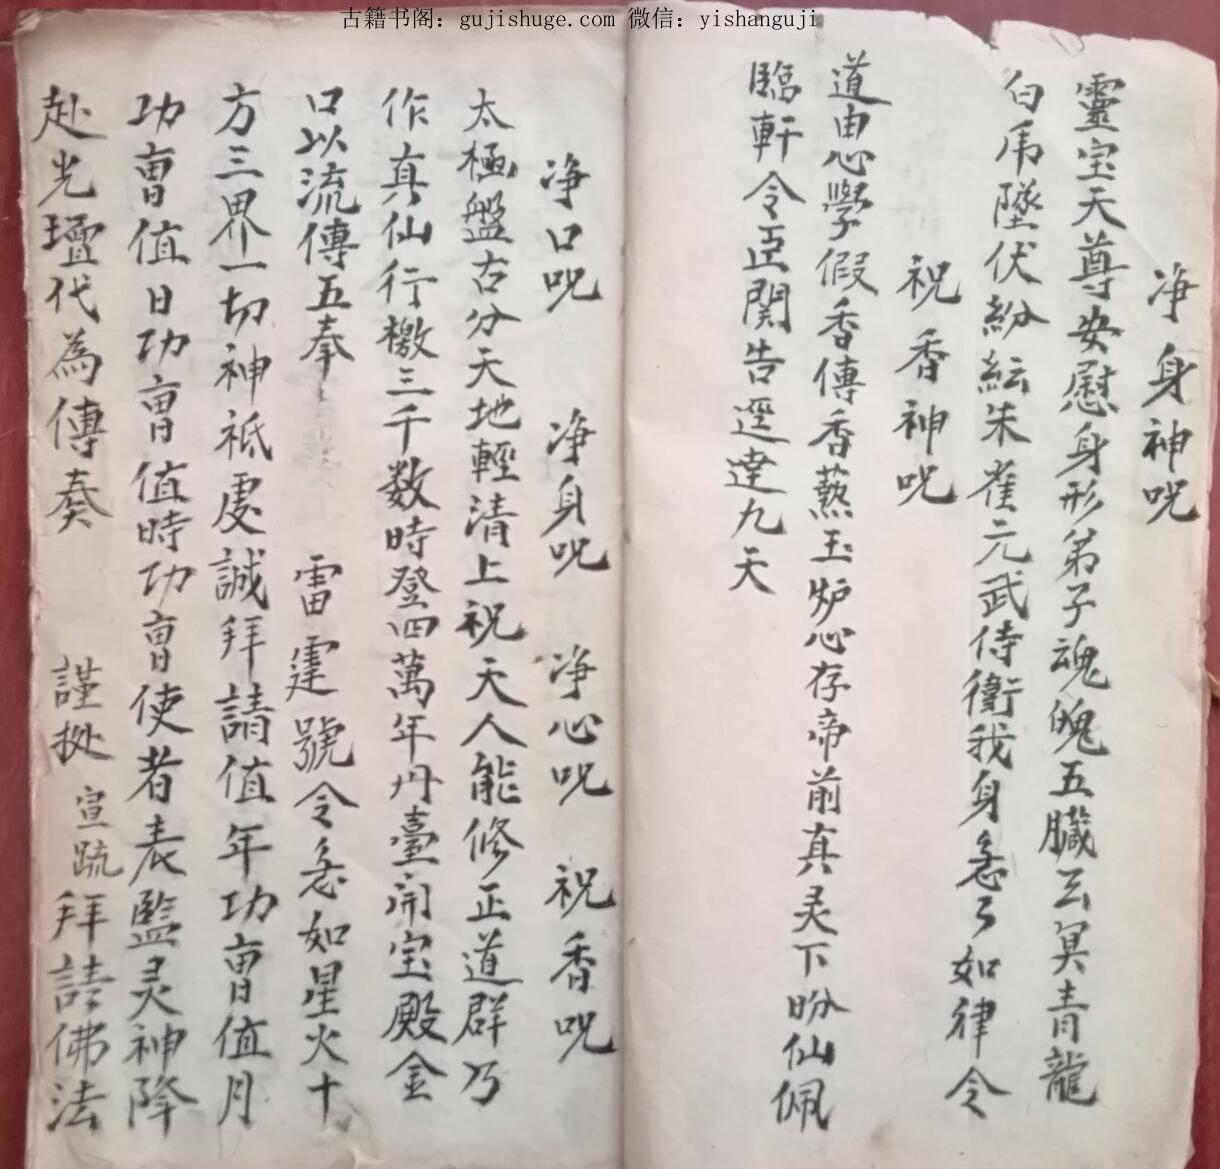 古籍书阁：gujishuge.com 微信：yishanguji
净身神呪
靈宝天尊安慰身形弟子魂魄五臟玄冥青龍
白虎墜伏紛紜朱雀元武侍衛我身急々如律令
祝香神呪
道由心學假香傳香爇玉炉心存帝前真灵下盼仙佩
臨軒令臣関告逕達九天
净口呪 净身呪 净心呪 祝香呪
太極盤古分天地輕清上祝天人能修正道群乃
作真仙行檄三千数時登四萬年丹臺開宝殿金
口以流傳五奉 雷霆號令急如星火十
方三界一切神祇處誠拜請值年功曹值月
功曹值日功曹值時功曹使者表監灵神降
赴光壇代為傳奏 謹 宣疏 拜請佛法